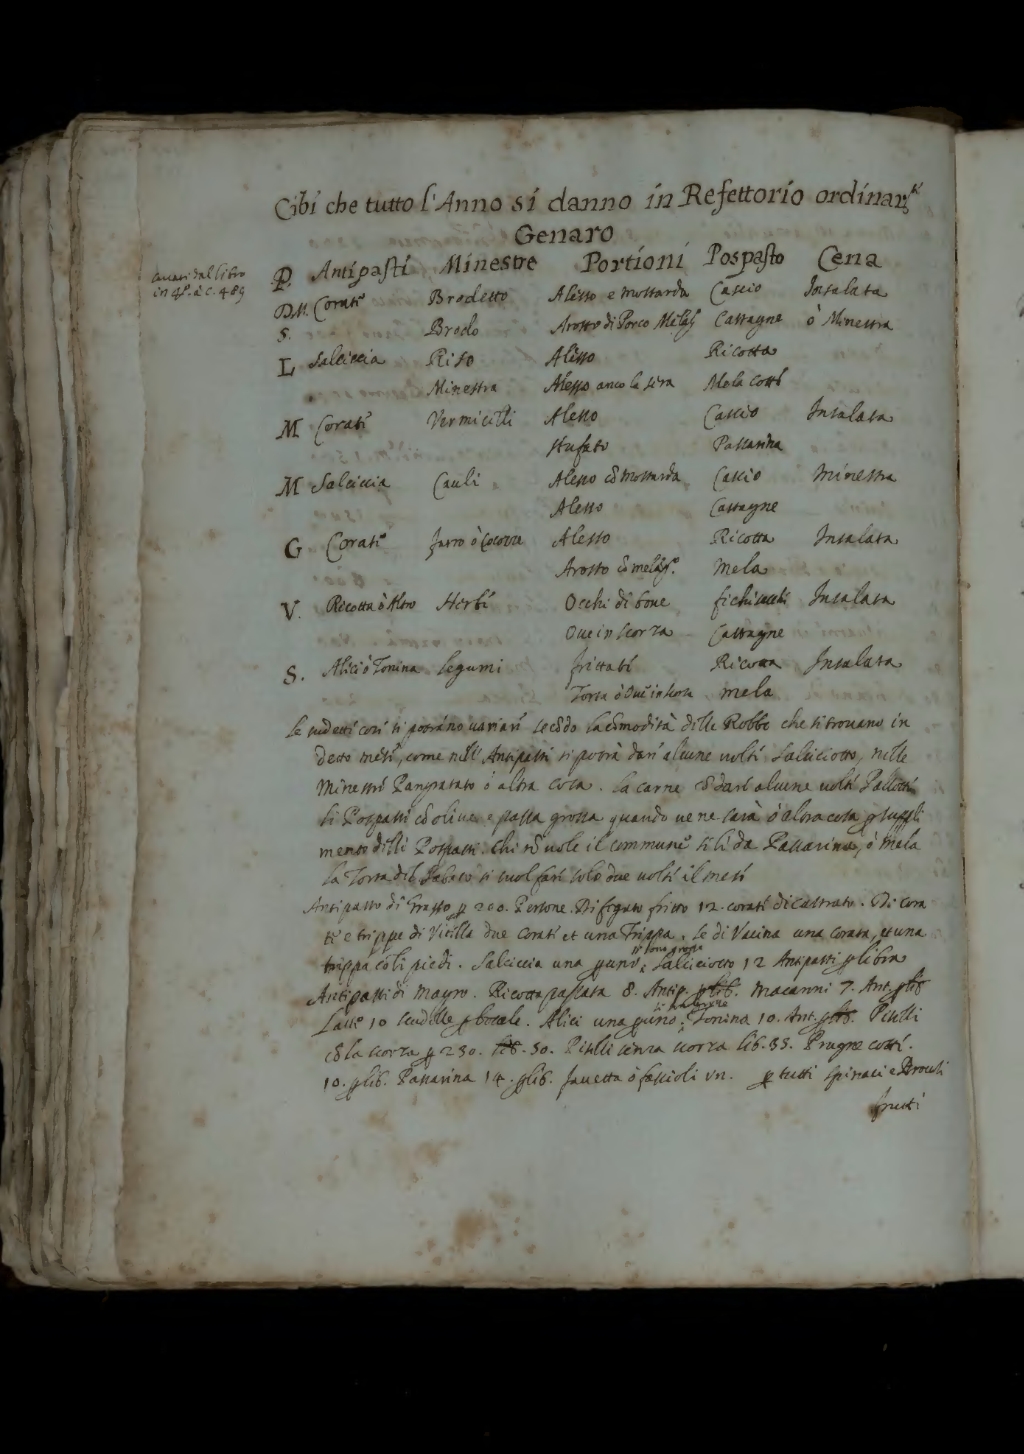 Cibi che tutto l'Anno si danno in Refettorio ordinar.ti
Genaro
cavati dal libro
in 4º. à c. 489
P. Antipasti Minestre Portioni Pospasto Cena
D.M. Corate Brodetto Alesso e mostarda Cascio Insalata
S. Brodo Arosto di Porco Melãg Castagne ò Minestra
L Salciccia Riso Alesso Ricotta
Minestra Alesso anco la sera Mela cotte
M Corate Vermicelli Alesso Cascio Insalata
Stufato Passarina
M Salciccia Cauli Alesso cõ mostarda Cascio Minestra
Alesso Castagne
G Corate farro ò Cocozza Alesso Ricotta Insalata
Arosto cõ melãg. mela
V. Ricotta ò Altro Herbe Occhi di bove fichi secchi Insalata
Ove in scorza Castagne
S. Alici ò Tonina legumi frittate Ricotta Insalata
Torta ò Ove in scorza mela
le sudette cose si potrãno variare secõdo la cõmodità delle Robbe che si trovano in
detto mese, come nell' Antipasti si potrà dare alcune volte Salciciotto, nelle
Minestre Pangratato ò altra cosa. la carne dare alcune volte
li Pospasti cõ olive e pasta grossa quando ve ne sarà ò altra cosa p suppli
mento delli Pospasti. Chi nõ vole il commune se li da Passarina, ò mela
la Torta del Sabato si suol fare solo due volte il mese
Antipasto di Grasso p 200. Persone. Di fegato fritto 12. corate di castrato. Di cora
te e trippe di Vitella due Corate et una Trippa. Se di Vacina una corata, et una
trippa cõ li piedi. Salciccia una p uno; Salciciotto 12 Antipasti p libra
Antipasti di Magro. Ricotta passata 8. Antip. p lib. Macaroni 7. Ant. p lib
Latte 10 scudelle p bocale. Alici una p uno; Tonina 10. Ant. p lib. Piselli
cõ la scorza p 230. lib. 50. Piselli senza scorza lib. 35. Prugne cotte.
10. p lib. Passarina 14. p lib. favetta ò fascioli p tutti Spinaci e Brocoli
frutti